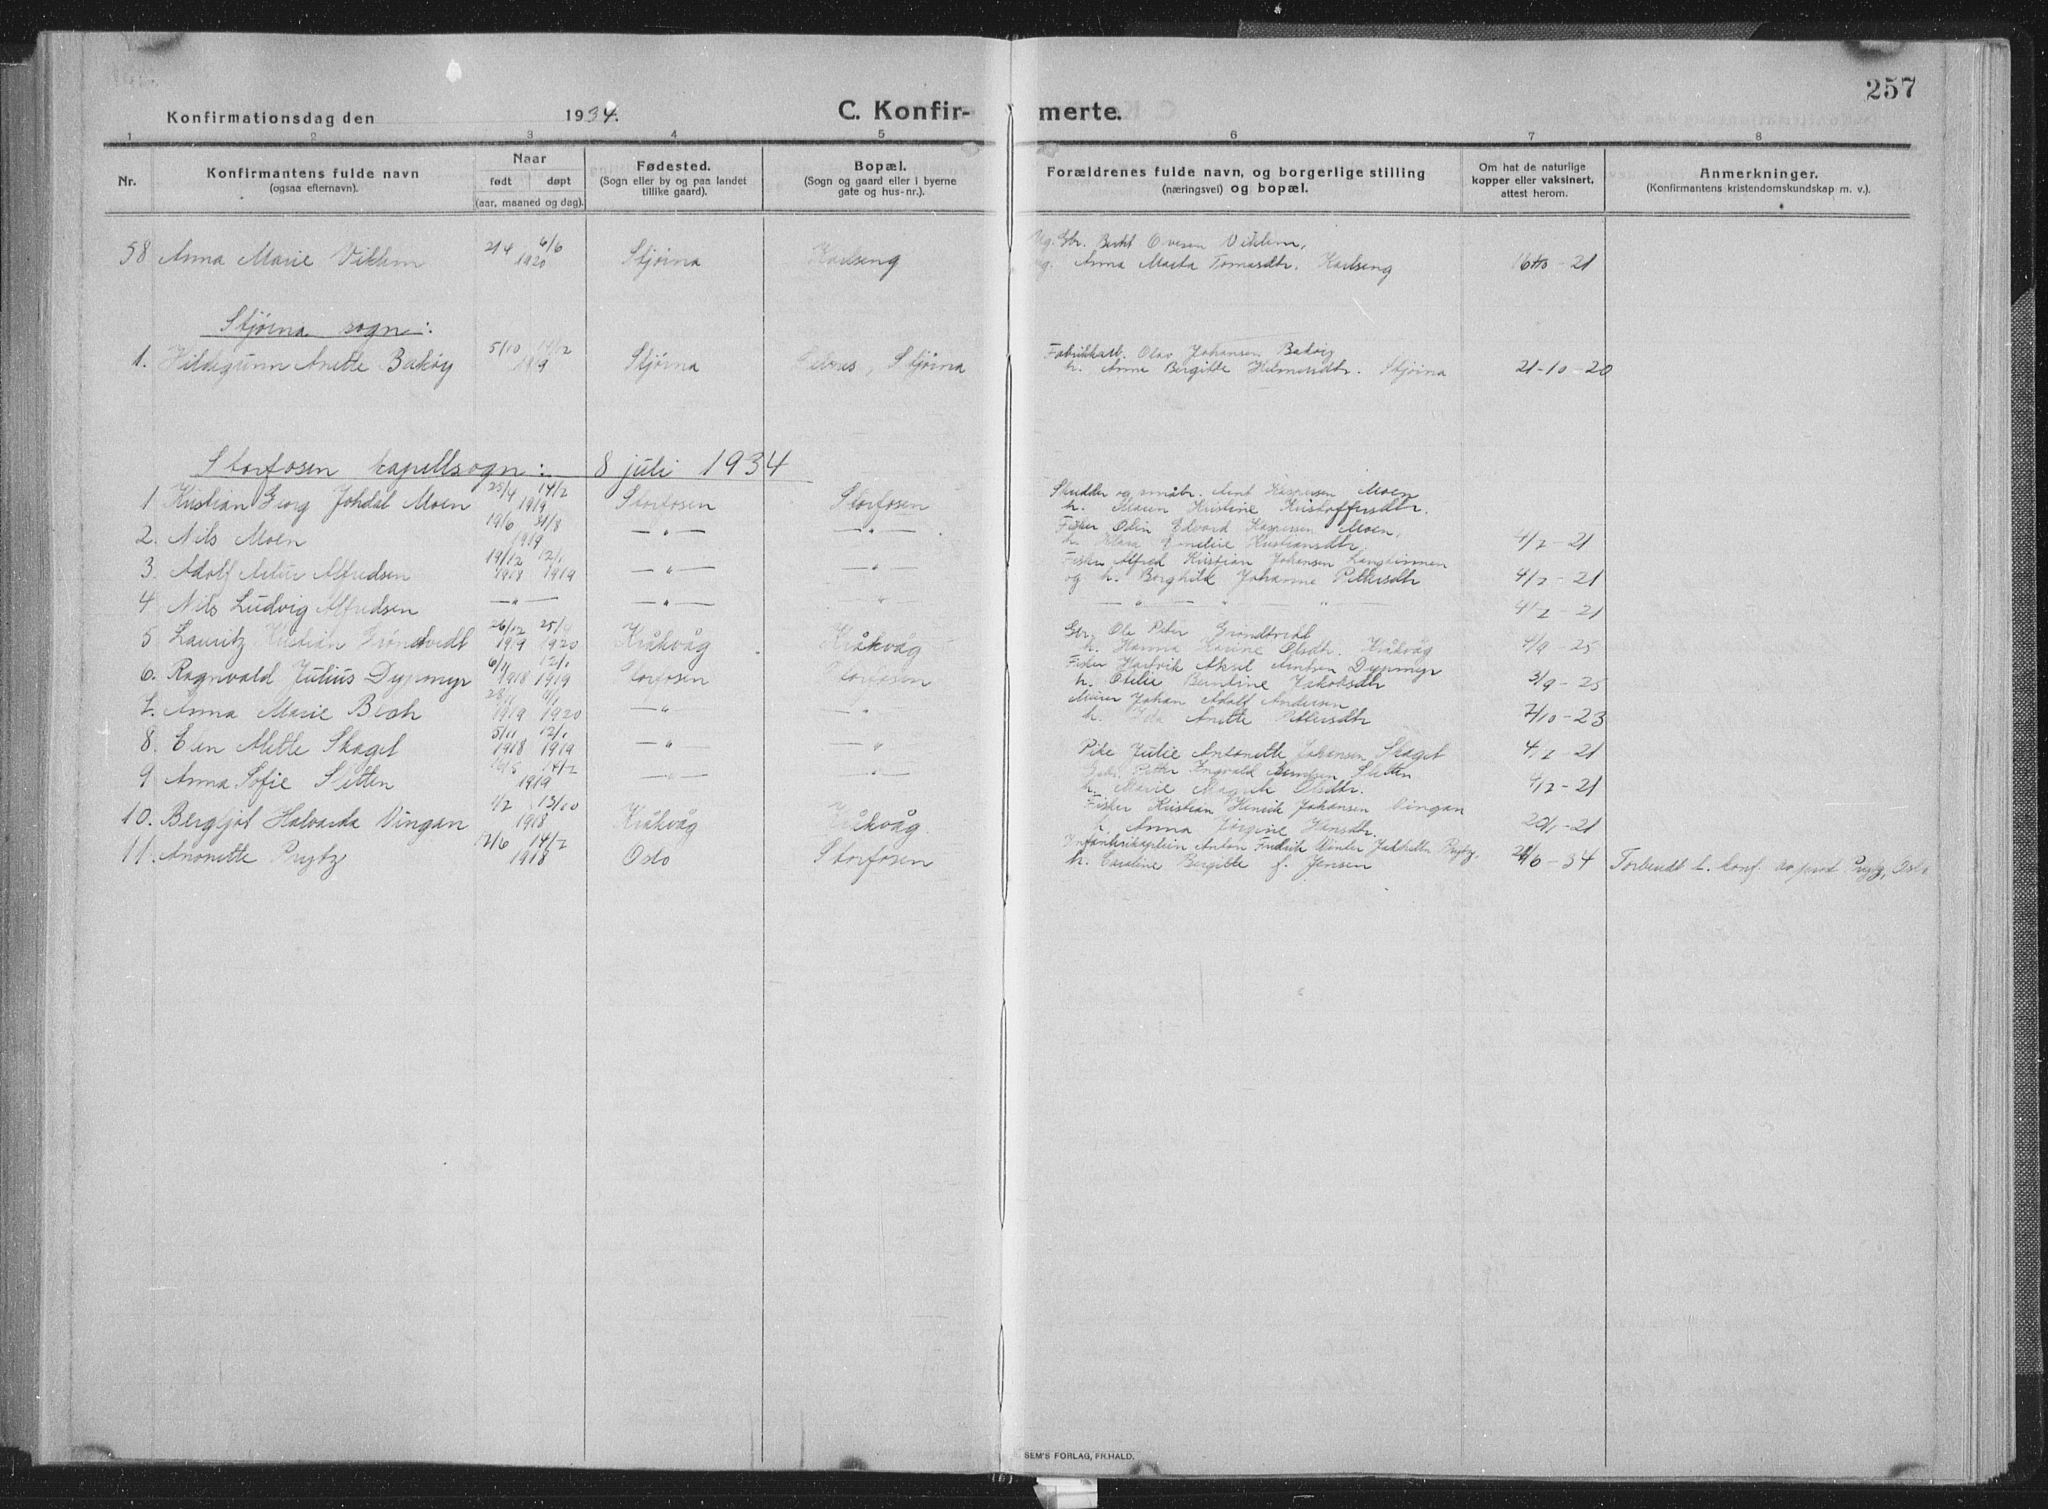 257
Konfirmationsdag den 1934.
C. Konfir- merte.
1 2 3 4 5 6 7 8
Nr.
Konfirmantens fulde navn
(ogsaa efternavn).
Naar
født døpt
(aar, maaned og dag).
Fødested.
(Sogn eller by og paa landet
tillike gaard).
Bopæl.
(Sogn og gaard eller i byerne
gate og hus-nr.).
Forældrenes fulde navn, og borgerlige stilling
(næringsvei) og bopæl.
Om hat de naturlige
kopper eller vaksinert,
attest herom.
Anmerkninger.
(Konfirmantens kristendomskundskap m. v.).
58 Anna Marie Viklem 21/4 6/6 1920 Stjørna Karlseng
Gbr. Berht Ovesen Viklem,
Anna Marta Tomasdtr. Karlseng 21
Stjørna sogn:
1. Hildegunn Anette Bakøy 5/10 14/12 1919 Stjørna Stjørna
Fabrikkarb. Olav Johansen
h. Anne Bergitte Hilmersdtr. Stjørna 21-10-20
Storfosen kapellsogn: 8 juli 1934
1 Kristian Georg Johdal Moen 25/4 14/2 1919 Storfosen Storfosen
og småbr. Arnt Kaspersen Moen
h. Maren Kristine Kristoffersdtr.
2. Nils Moen 19/6 31/8 1919 —"— —"—
Fisker Odin Edvard Kaspersen Moen,
h. Klara Emelie Kristiansdtr. 4/2-21
3. Adolf Artur Alfredsen 19/12 1918 12/1 1919 —"— —"—
Fisker Alfred Kristian Johansen
og h. Borghild Johanne Pettersdtr 4/2-21
4. Nils Ludvig Alfredsen —"— —"— —"— "
—"— " — " — 4/2-21
5. Lauritz Kristian Grøndtvedt 26/12 1919 25/4 1920 Kråkvåg Kråkvåg
Gbr. Ole Peter Grøndtvedt
h. Hanna Karine Olsdtr. Kråkvåg 4/9-25
6. Ragnvald Julius Dypmyr 6/11 1918 12/1 1919 Storfosen Storfosen
Fisker Hartvik Aksel Anton Dypmyr
h. Otelie Berntine Jakobsdtr 3/9-25
7. Anna Marie Bech 28/11 1919 4/1 1920 —"— "
Murer Johan Adolf Andersen
h. Ida Anette Pettersdtr 7/10-23
8. Elen Mette Skaget 5/11 1918 12/1 1919 —"— "
Pike Julie Antonette Johansen Skaget 4/2-21
9. Anna Sofie Sletten 14/2 1919 —"— "
Petter Ingvald Sletten
h. Marie Olsdtr. 4/2-21
10. Bergljot Halvarda Vingan 1/2 13/10 1918 Kråkvåg Kråkvåg
Fisker Kristian Henrik Johansen Vingan
h. Anna Jørgine Hansdtr. 20/1-21
11. Anonette Prytz 12/6 14/7 1918 Oslo Storfosen
Infanterikaptein Anton Fredrik Winter Jakhelln Prytz,
h. Caroline Bergitte f. Jensen 24/6-34 Forberedt t. konf. av prest Prytz, Oslo
SEM'S FORLAG, FR.HALD.